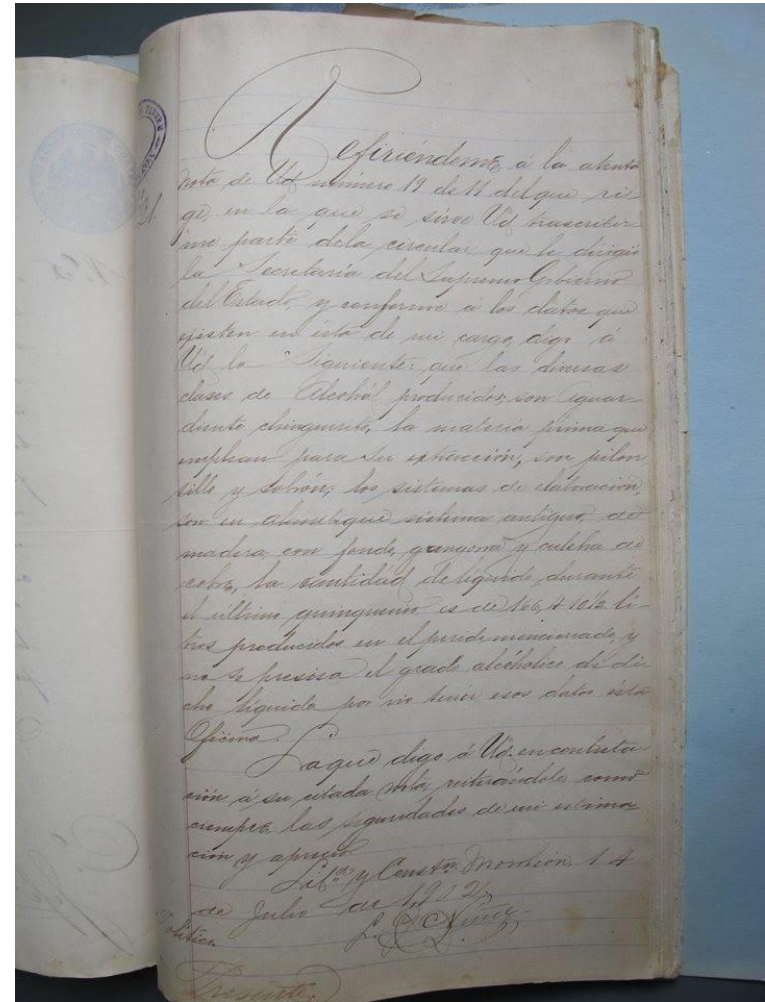 Refiriéndome á la atenta
nota de Ud número 19 de 11 del que ri-
ge, en la que se sirve Ud trascribir-
me parte dela circular que le dirigió
la Secretaría del Supremo Gobierno
del Estado, y conforme á los datos que
existen en ésta de mi cargo, digo á
Ud lo Siguiente: que las diversas
clases de Alcohól producidos, son aguar-
diente chinguirito, la materia prima que
emplean para su extracción, son pilon
sillo y sobrón; los sistemas de elaboración,
son en alambique sistema antiguo, de
madera, con fondo, y culebra de
cobre, la cantidad de líquido, durante
el último quinquenio, es de 166,410½ li-
tros producidos en el perido mencionado, y
no se presisa el grado alcohólico de di
cho líquido por no tener esos datos ésta
Oficina.
Loque digo á Ud. en contesta-
ción á su citada nota, reiterándole como
siempre las seguridades de mi estima
ción y aprecio.
Lib. y Constón. 14
de Julio de 1902
Política
Presente.